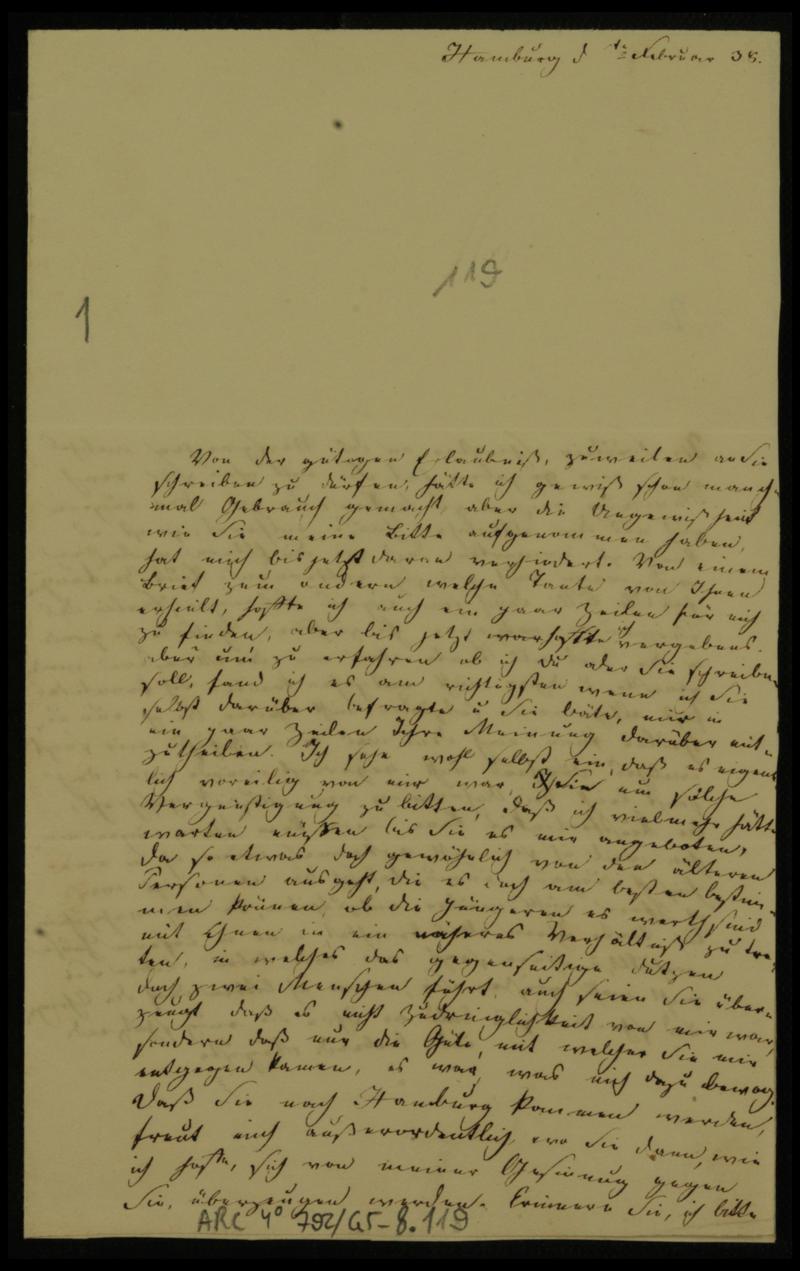 Hamburg d te Februar 38.
119
1
Von der gütigen Erlaubniß, zuweilen an Sie
schreiben zu dürfen, hätte ich gewiß schon manch-
mal Gebrauch gemacht, aber die Ungewißheit
wie Sie meine Bitte aufgenommen haben,
hat mich bis jetzt daran verhindert. Von einem
Brief zum andern welche Tante von Ihnen
erhielt, hoffte ich auch ein paar Zeilen für mich
zu finden, aber bis jetzt war vergebens.
aber um zu erfahren ob ich Du oder Sie schreiben
soll, fand ich es am richtigsten wenn ich Sie
selbst darüber befragte u Sie bäte, mir in
ein paar Zeilen Ihre Meinung darüber mit-
zutheilen. Ich sehe wohl selbst ein, daß es eigent-
lich voreilig von mir war, Sie um solche
Vergünstigung zu bitten, daß ich vielmehr hätte
warten müssen bis Sie es mir angeboten,
da so etwas doch gewöhnlich von den älteren
Personen ausgeht, die es doch am besten bestim-
men können, ob die Jüngeren es werth sind
mit Ihnen in ein näheres Verhältniß zu tre-
ten, in welches das gegenseitige dutzen
doch zwei Menschen führt. auch seien Sie über-
zeugt daß es nicht Zudringlichkeit von mir war,
sondern daß nur die Güte, mit welcher Sie mir
entgegen kamen, es war, was mich dazu bewog.
Daß Sie nach Hamburg kommen werden,
freut mich außerordentlich, wo Sie dann, wie
ich hoffe, sich von meiner Gesinnung gegen
Sie, überzeugen werden. Erinnern Sie, ich bitte
ARC 4° 792/G5-8.119